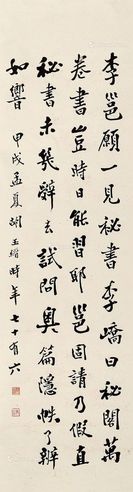 李邕顧一見秘書李嶠曰秘閣萬
卷書豈時日能習耶邕固請乃假直
秘書未幾辭去試問奧篇隱帙了辯
如響
甲戌孟夏胡玉縉時年七十有六